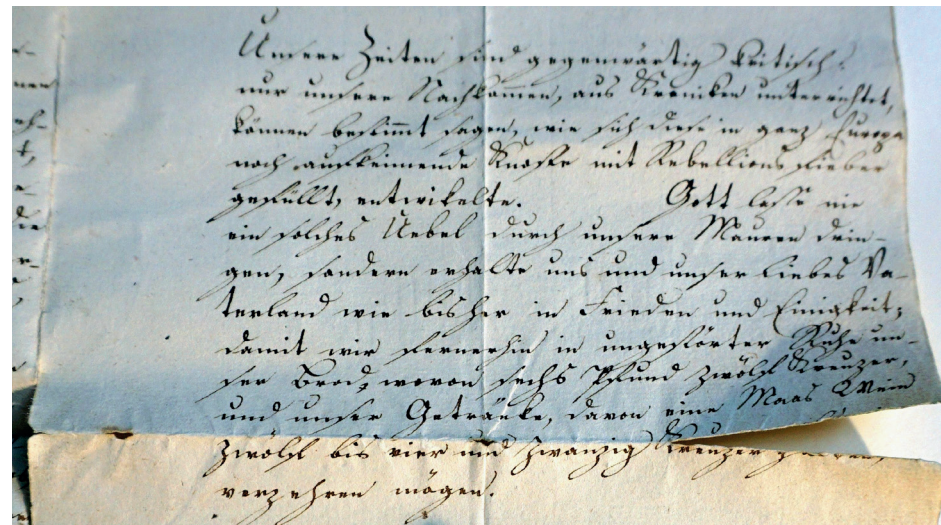 Unsere Zeiten sind gegenwärtig kritisch:
nur unsere Nachkommen, aus Kroniken unterrichtet,
können bestimmt sagen, wie sich diese in ganz Europa
noch aufkeimende Knospe mit Rebellionsfieber
gefüllt, entwikelte. Gott lasse nie
ein solches Uebel durch unsere Mauren drin-
gen, sondern erhalte uns und unser liebes Va-
terland wie bisher in Frieden und Einigkeit;
damit wir fernerhin in ungestörter Ruhe un-
ser Brod, wovon sechs Pfund zwölf Kreuzer,
und unser Getränke, davon eine Maas Wein
zwölf bis vier und zwanzig Kreuzer
verzehren mögen.